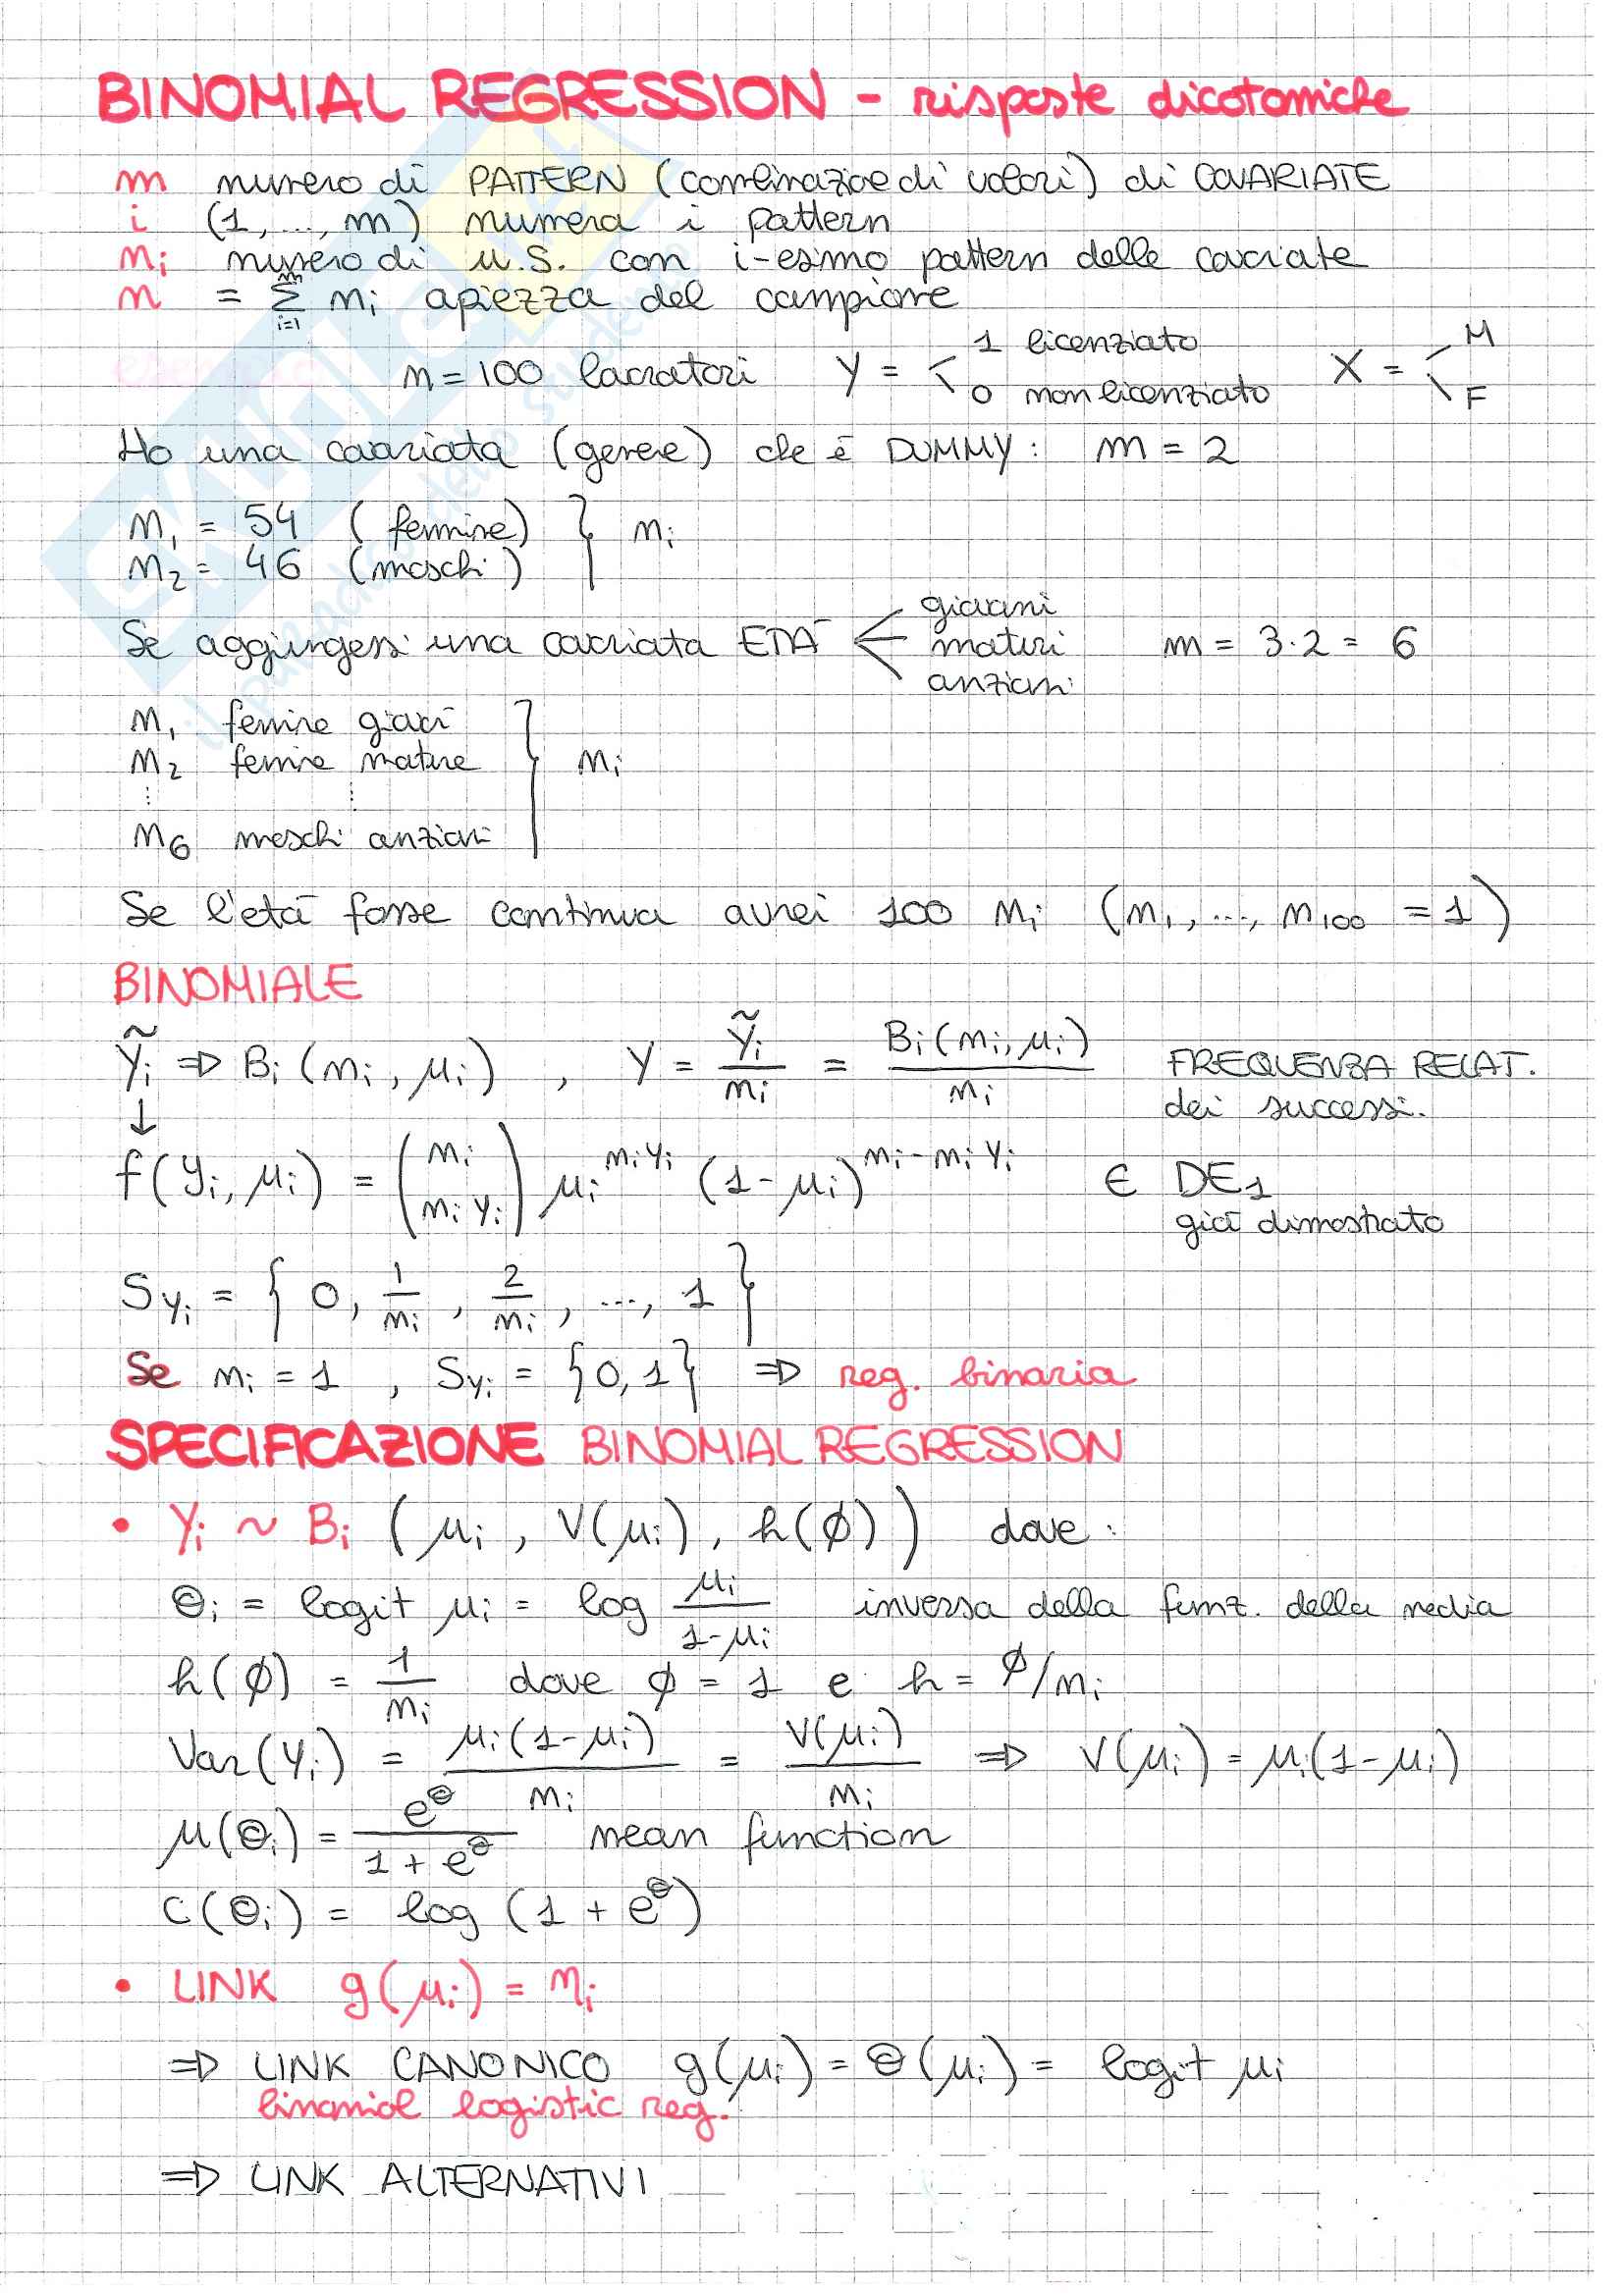 BINOMIAL REGRESSION - risposte dicotomiche
m numero di PATTERN (combinazione di valori) di COVARIATE
i (1, ..., m) numera i pattern
mᵢ numero di u.s. con i-esimo pattern delle covariate
n = Σᵢ₌₁ᵐ mᵢ apiezza del campione
esempio n = 100 lavoratori Y = < 1 licenziato 0 non licenziato X = < M F
Ho una covariata (genere) che è DUMMY: m = 2
m₁ = 54 (femmine) } mᵢ
m₂ = 46 (maschi)
Se aggiungessi una covariata ETÀ < giovani maturi anziani m = 3·2 = 6
m₁ femmine giovani
m₂ femmine mature } mᵢ
⋮ ⋮
m₆ maschi anziani
Se l'età fosse continua avrei 100 mᵢ (m₁, ..., m₁₀₀ = 1)
BINOMIALE
Ỹᵢ ⇒ Bᵢ (mᵢ, μᵢ) , Y = Ỹᵢ / mᵢ = Bᵢ(mᵢ, μᵢ) / mᵢ FREQUENZA RELAT.
↓ dei successi.
f(yᵢ, μᵢ) = (mᵢ mᵢyᵢ) μᵢ^(mᵢyᵢ) (1-μᵢ)^(mᵢ-mᵢyᵢ) ∈ DE₁
già dimostrato
Syᵢ = { 0, 1/mᵢ, 2/mᵢ, ..., 1 }
Se mᵢ = 1 , Syᵢ = {0, 1} ⇒ reg. binaria
SPECIFICAZIONE BINOMIAL REGRESSION
• Yᵢ ~ Bᵢ (μᵢ, V(μᵢ), h(φ)) dove:
θᵢ = logit μᵢ = log μᵢ/(1-μᵢ) inversa della funz. della media
h(φ) = 1/mᵢ dove φ = 1 e h = φ/mᵢ
Var(Yᵢ) = μᵢ(1-μᵢ)/mᵢ = V(μᵢ)/mᵢ ⇒ V(μᵢ) = μᵢ(1-μᵢ)
μ(θᵢ) = e^θ/(1+e^θ) mean function
c(θᵢ) = log (1 + e^θ)
• LINK g(μᵢ) = ηᵢ
⇒ LINK CANONICO g(μᵢ) = θ(μᵢ) = logit μᵢ
binomial logistic reg.
⇒ LINK ALTERNATIVI